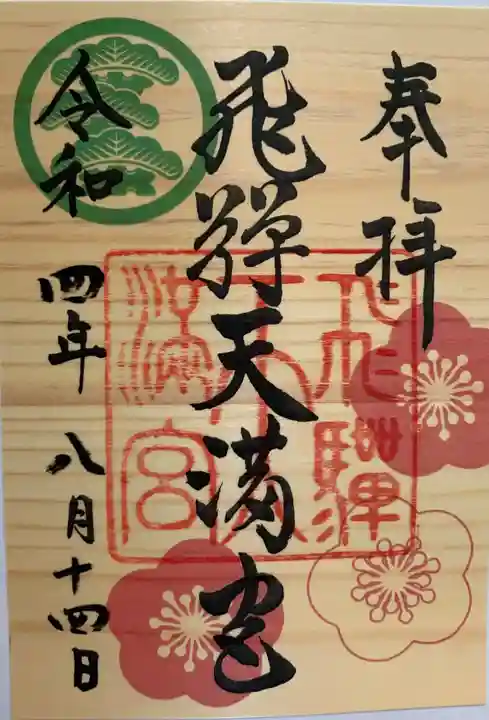 奉拝
飛騨天満宮
令和四年八月十四日
飛騨天満宮